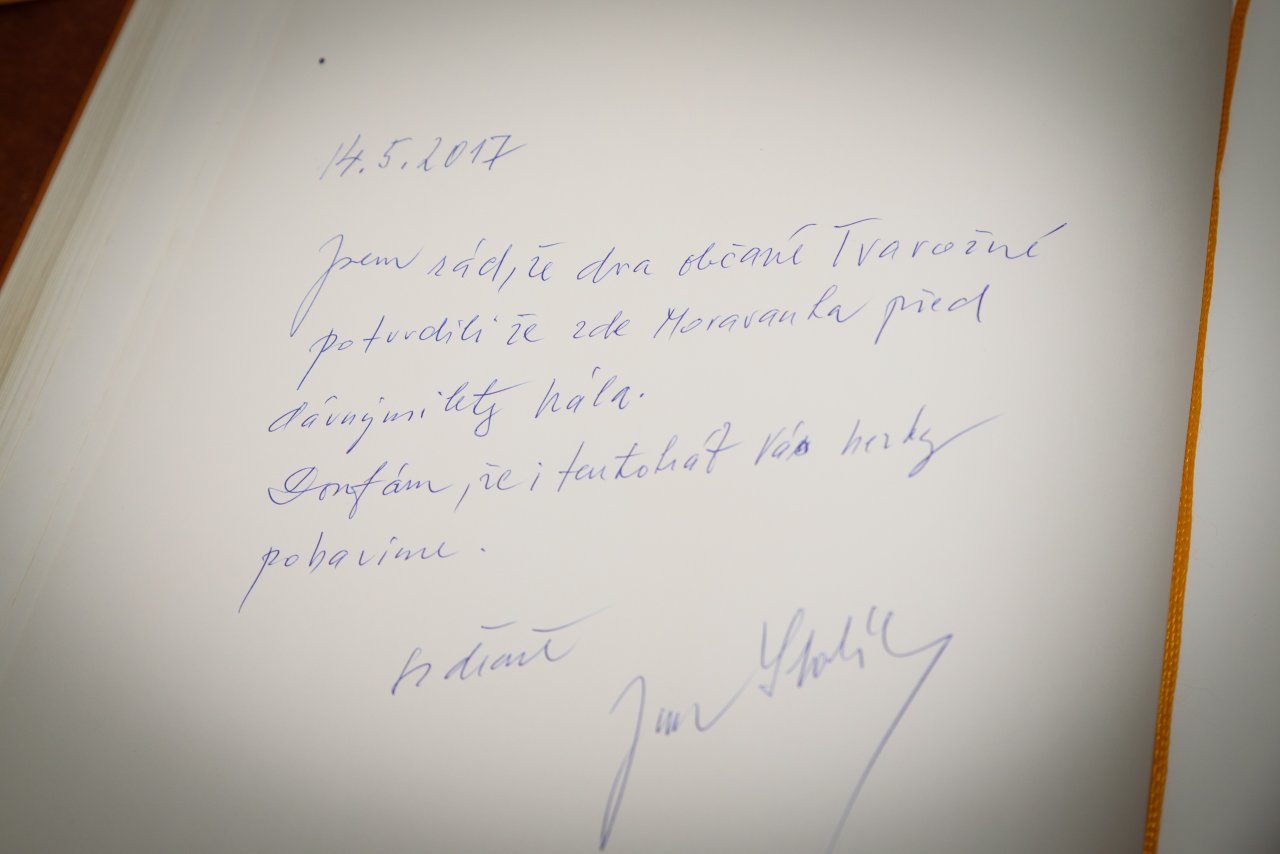 14.5.2017
Jsem rád, že dva občané Tvarožné
potvrdili že zde Moravanka před
dávnými lety hrála.
Doufám, že i tentokrát Vás hezky
pobavíme.
Srdečně
Jan Slabák